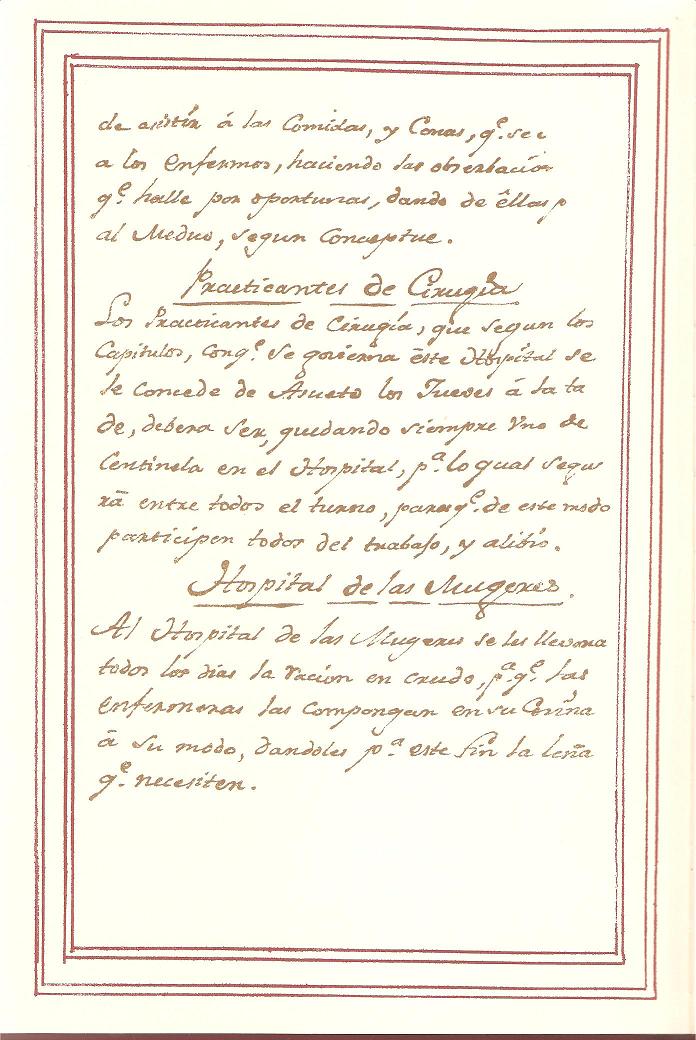 de asistir á las Comidas, y Cenas, q.e se e
a los Enfermos, haciendo las obserbacion
q.e halle por oportunas, dando de êllas p
al Medico, segun Conceptue.
Practicantes de Cirugia
Los Practicantes de Cirugía, que segun los
Capitulos, con q.e se govierna êste Hospital se
le concede de Asueto los Jueves á la ta
de, debera ser, quedando siempre Vno de
Centinela en el Hospital, p.a lo qual segui
rá entre todos el turno, para q.e de este modo
participen todos del trabajo, y alibio.
Hospital de las Mugeres.
Al Hospital de las Mugeres se les llevara
todos los dias la racion en crudo, p.a q.e las
enfermeras las compongan en su Cocina
á su modo, dandoles p.a este fin la leña
q.e necesiten.